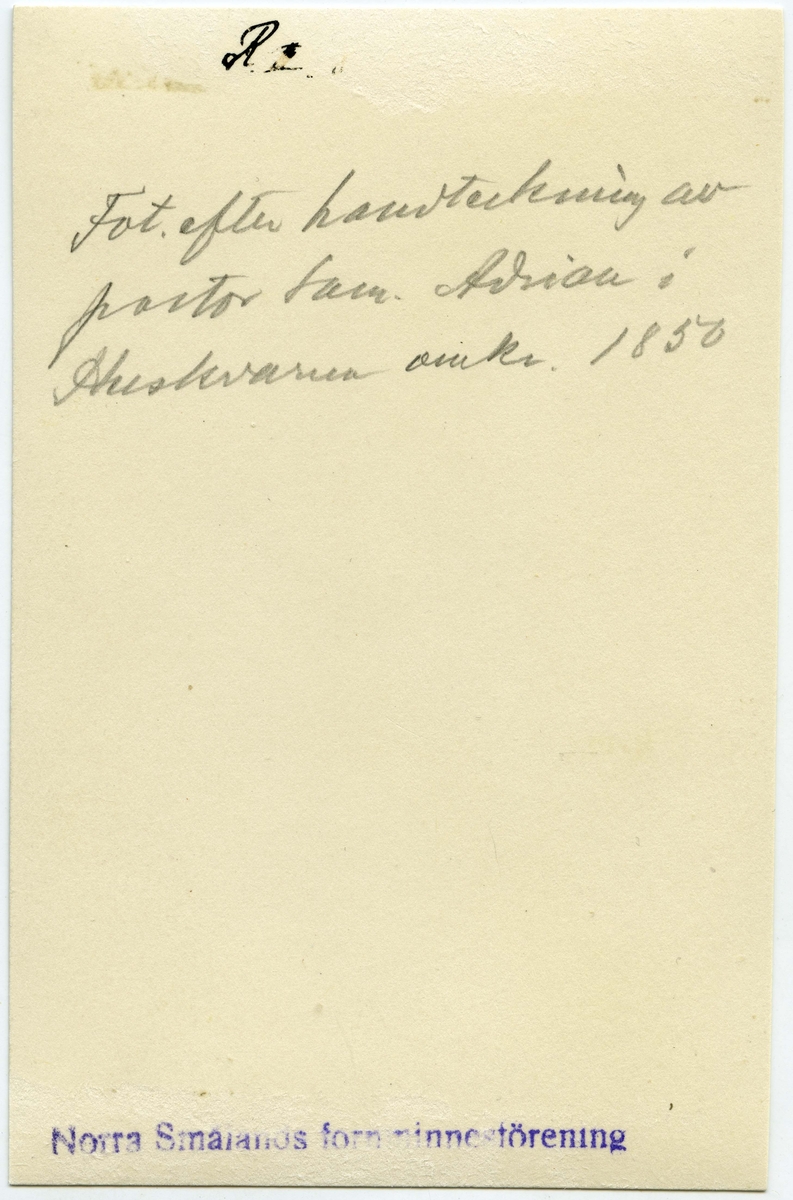 R.
Fot. efter handteckning av
pastor Sam. Adrian i
Huskvarna omkr. 1850
Norra Smålands fornminnesförening